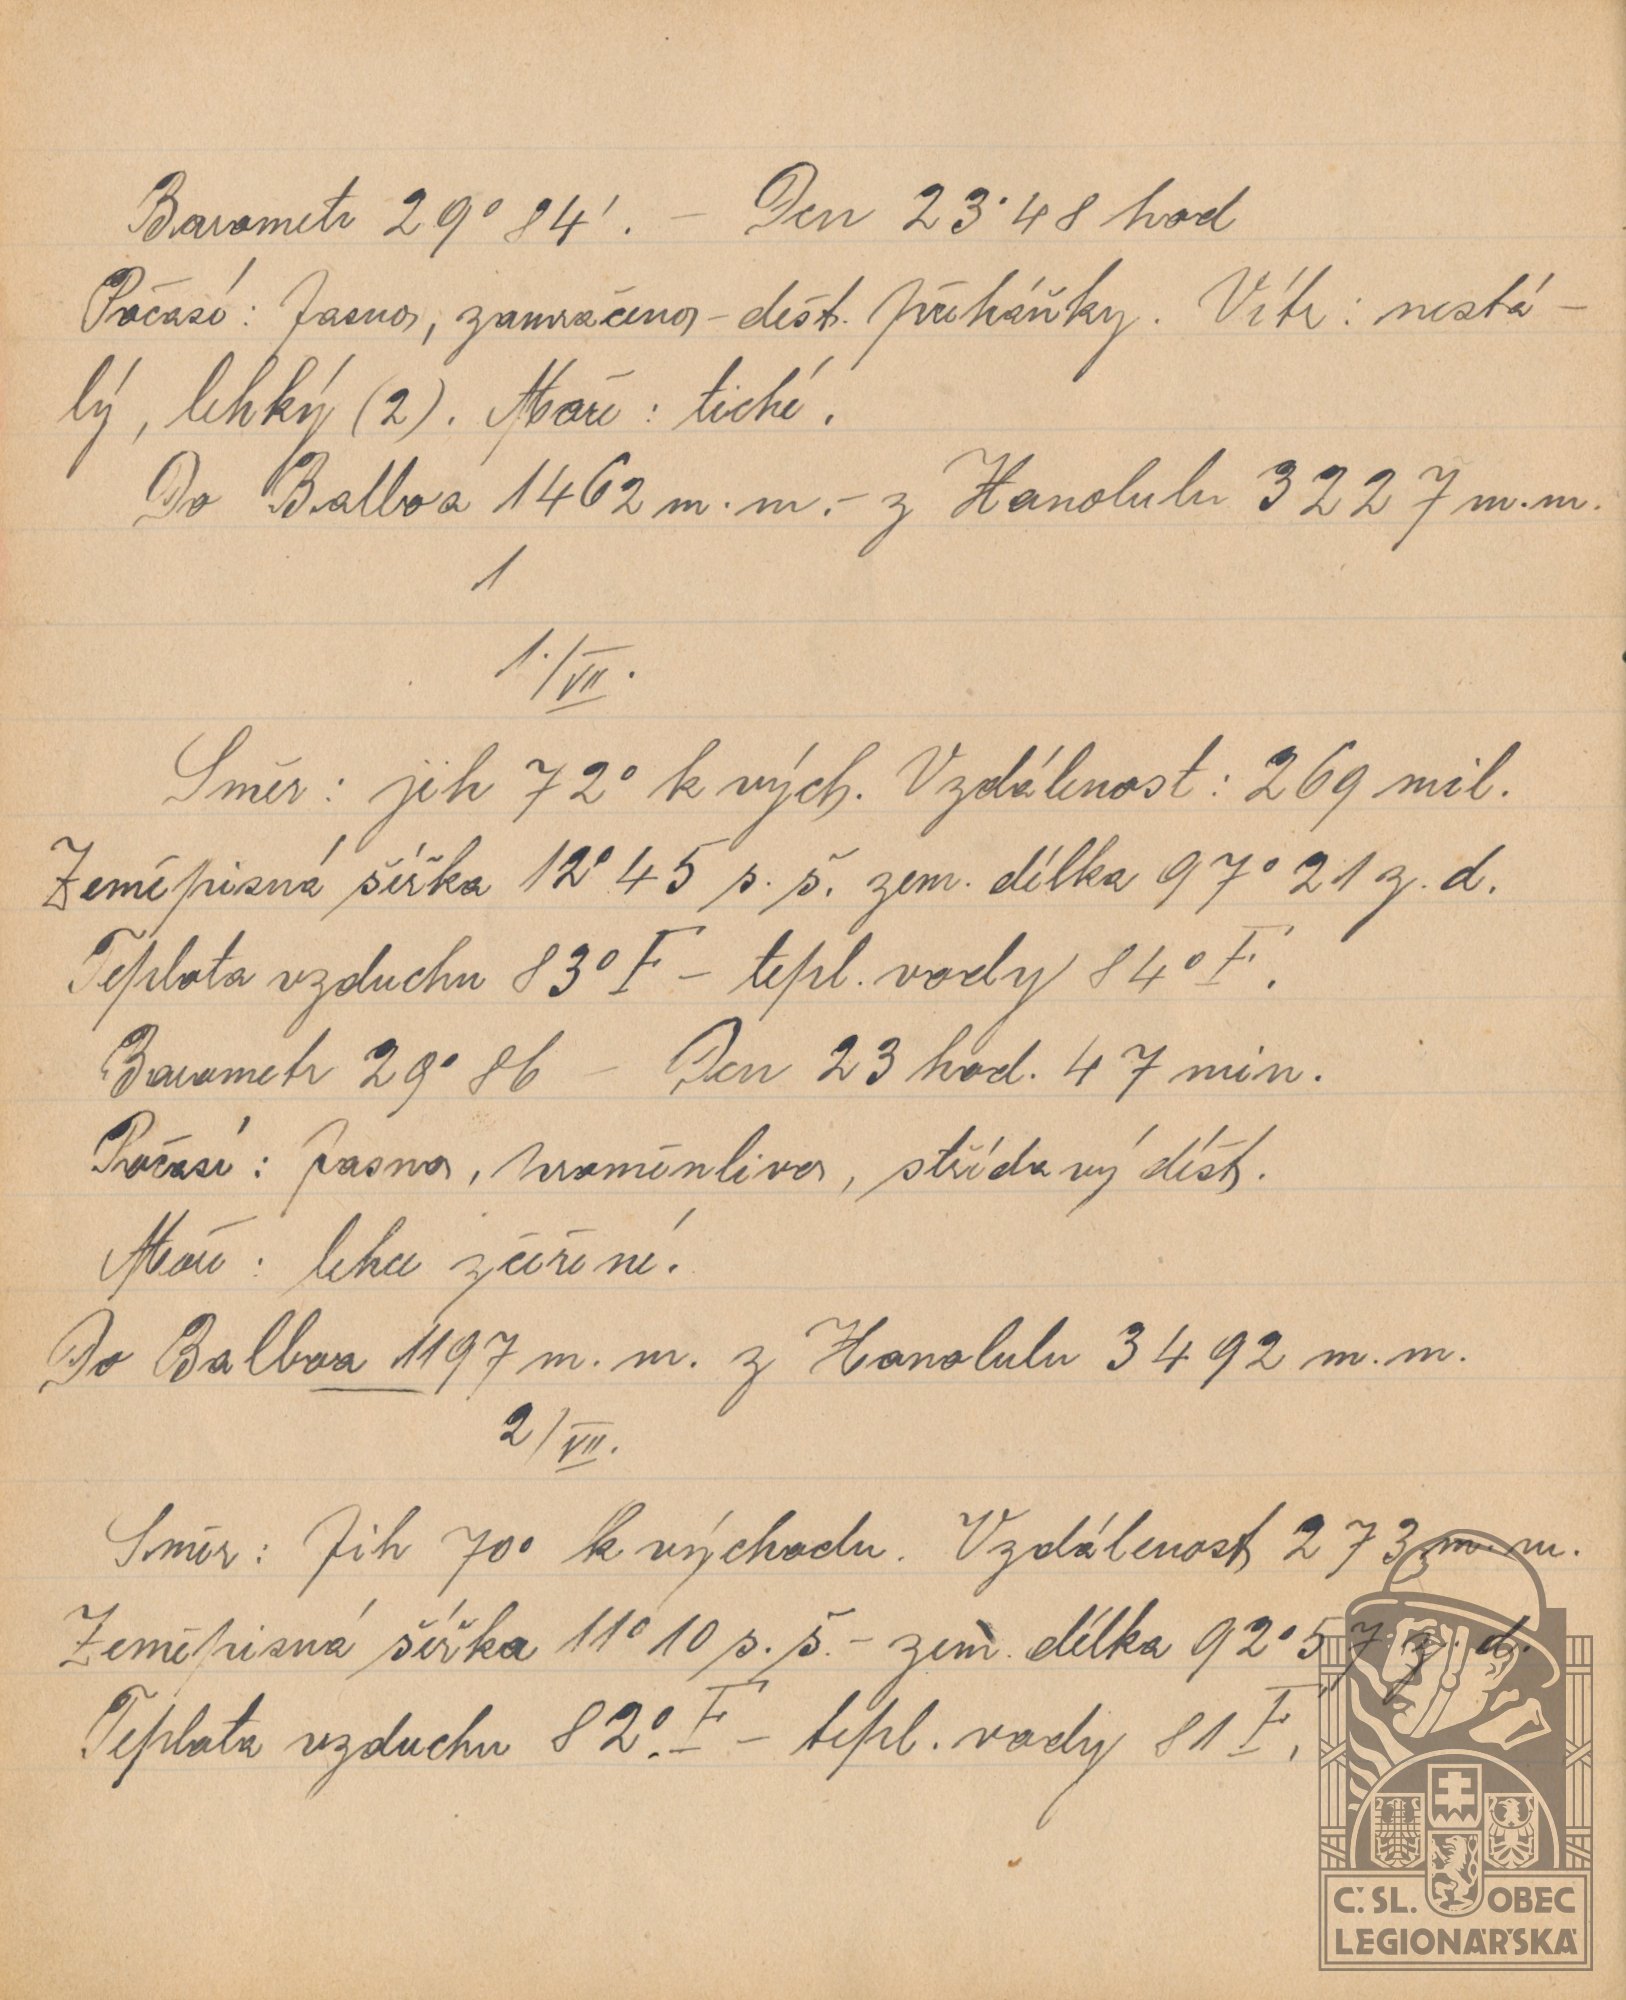 Barometr 29° 84'. - Den 23·48 hod
Počasí: Jasno, zamračeno - dešt. přeháňky. Vítr: nestá-
lý, lehký (2). Moře: tiché.
Do Balboa 1462 m. m. - z Honolulu 3227 m. m.
1
1./VII.
Směr: jih 72° k vých. Vzdálenost: 269 mil.
Zeměpisná šířka 12° 45 s. š. zem. délka 97° 21 z. d.
Teplota vzduchu 83° F - tepl. vody 84° F.
Barometr 29° 86 - Den 23 hod. 47 min.
Počasí: Jasno, proměnlivo, střídavý déšť.
Moře: lehce zčeřené.
Do Balboa 1197 m. m. z Honolulu 3492 m. m.
2/VII.
Směr: Jih 70° k východu. Vzdálenost 273 m. m.
Zeměpisná šířka 11° 10 s. š. - zem. délka 92° 57 z. d.
Teplota vzduchu 82° F - tepl. vody 81 F.
Č. SL. OBEC
LEGIONÁŘSKÁ